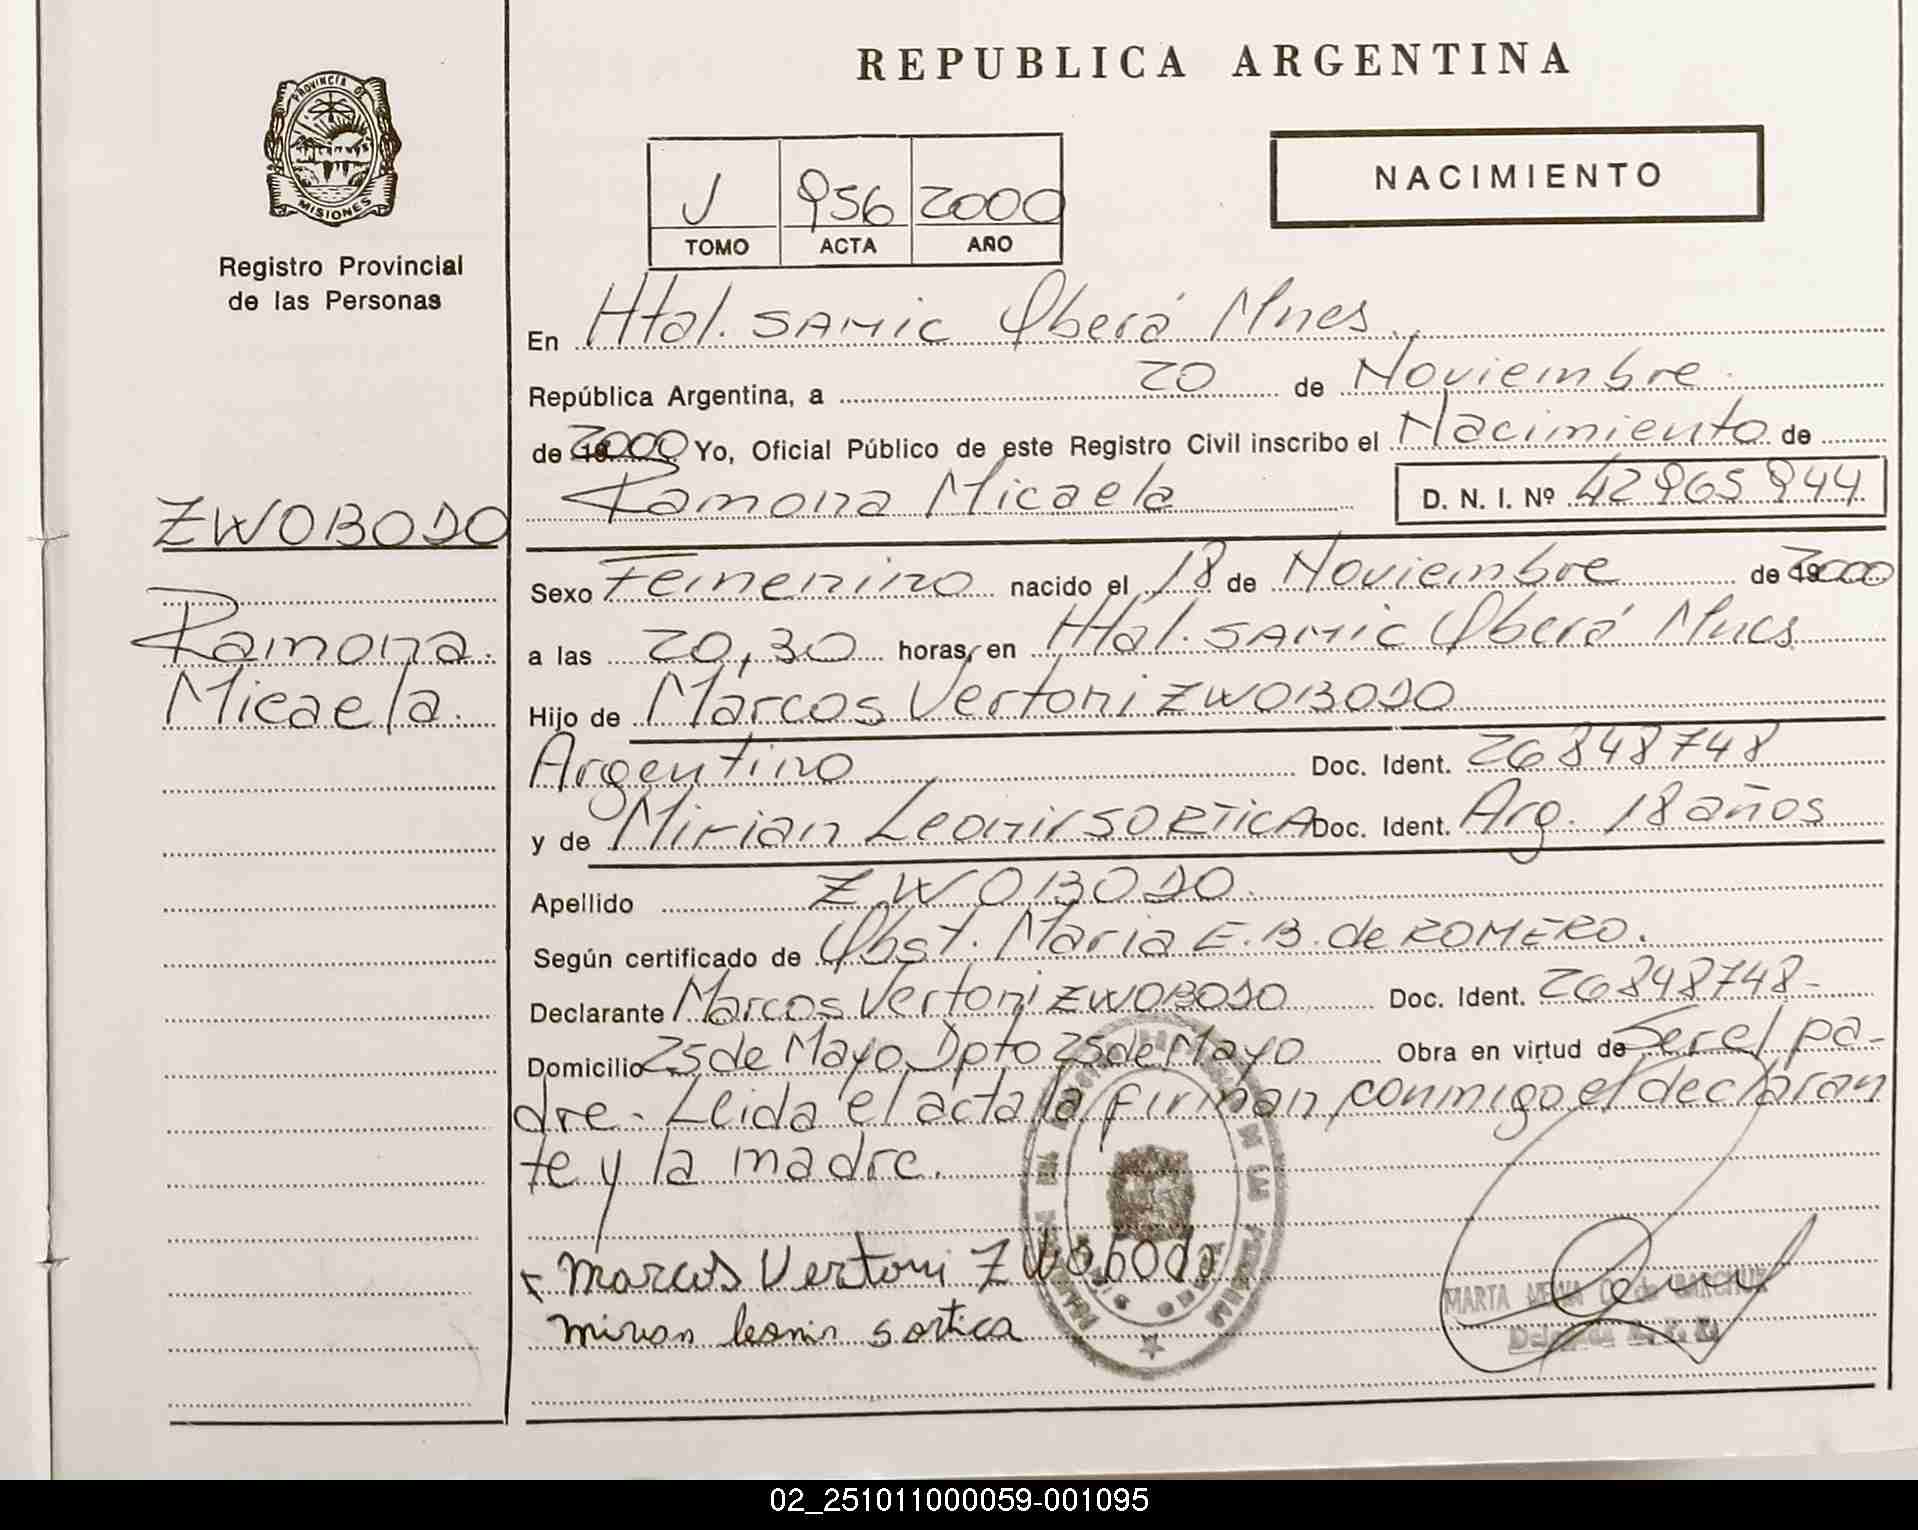 REPUBLICA ARGENTINA
PROVINCIA DE
MISIONES
Registro Provincial
de las Personas
J 956 2000
TOMO ACTA AÑO
NACIMIENTO
En Htal. SAMIC Oberá Mnes.
República Argentina, a 20 de Noviembre
de 2000 Yo, Oficial Público de este Registro Civil inscribo el Nacimiento de
Ramona Micaela D. N. I. Nº 42965944
ZWOBODO
Ramona
Micaela.
Sexo Femenino nacido el 18 de Noviembre de 2000
a las 20,30 horas, en Htal. SAMIC Oberá Mnes
Hijo de Marcos Vertoni ZWOBODO
Argentino Doc. Ident. 26848748
y de Mirian Leonir SORTICA Doc. Ident. Arg. 18 años
Apellido ZWOBODO.
Según certificado de Obst. Maria E. B. de ROMERO.
Declarante Marcos Vertoni ZWOBODO Doc. Ident. 26848748-
Domicilio 25 de Mayo Dpto 25 de Mayo Obra en virtud de Ser el pa-
dre. Leida el acta la firman conmigo el declaran
te y la madre.
Marcos Vertoni Zwobodo
mirian leonir sortica
MARTA
02_251011000059-001095